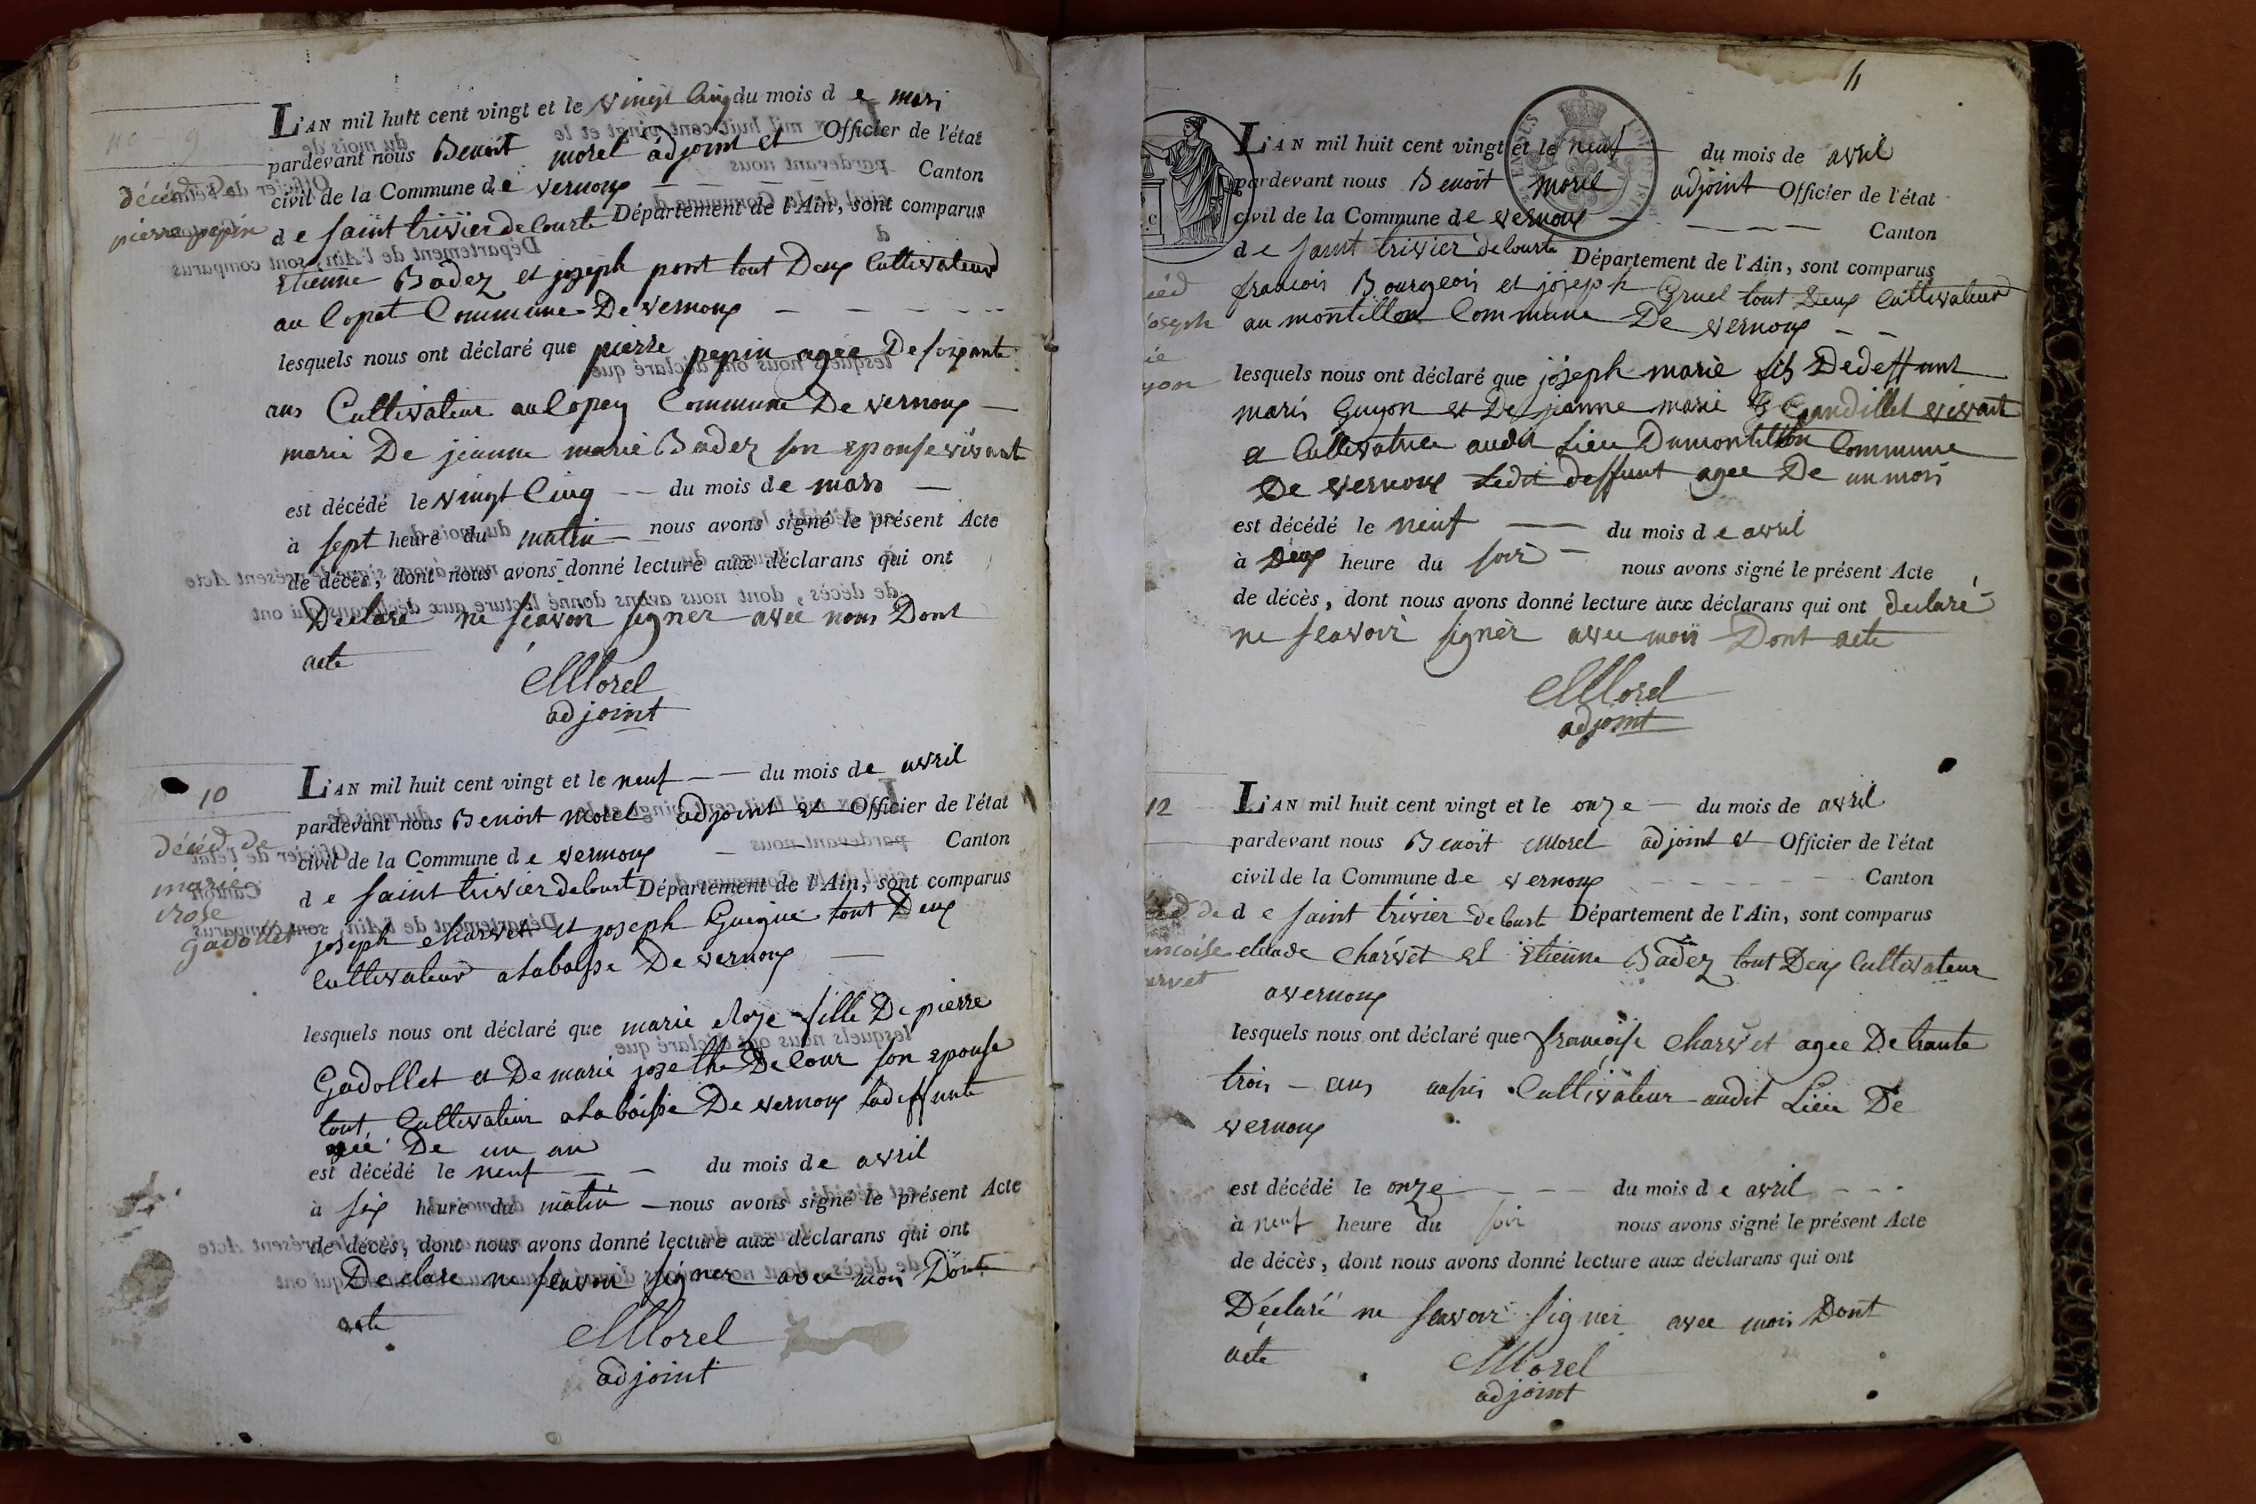 nº 9
décéd de
pierre pepin
L'AN mil huit cent vingt et le vingt Cinq du mois de mars
pardevant nous Benoit morel adjoint et Officier de l'état
civil de la Commune de vernoux Canton
de saint trivier de Courte Département de l'Ain, sont comparus
Etienne Badez et joseph pont tout Deux Cultivateur
au Copet Commune De vernoux
lesquels nous ont déclaré que pierre pepin agée De soixante
ans Cultivateur au Copey Commune De vernoux
marié De jeanne marie Badez son epouse vivant
est décédé le vingt Cinq du mois de mars
à sept heure du matin nous avons signé le présent Acte
de décès, dont nous avons donné lecture aux déclarans qui ont
Declaré ne scavoir signer avec nous Dont
acte
Morel
adjoint
10
décéd de
marie
rose
gadollet
L'AN mil huit cent vingt et le neuf du mois de avril
pardevant nous Benoit Morel adjoint et Officier de l'état
civil de la Commune de vernoux Canton
de saint trivier de Court Département de l'Ain, sont comparus
joseph charvet et joseph Guigue tout Deux
Cultivateur a la boisse De vernoux
lesquels nous ont déclaré que marie roze fille De pierre
Gadollet et De marie josethe De Cour son epouse
tout Cultivateur a la boisse De vernoux ladeffunte
agée De un an
est décédé le neuf du mois de avril
à six heure du matin nous avons signé le présent Acte
de décès, dont nous avons donné lecture aux déclarans qui ont
Declare ne scavoir signer avec moi Dont
acte
Morel
adjoint
11
L'AN mil huit cent vingt et le neuf du mois de avril
pardevant nous Benoit morel adjoint Officier de l'état
civil de la Commune de vernoux Canton
de saint trivier de Courte Département de l'Ain, sont comparus
francois Bourgeois et joseph Gruel tout Deux Cultivateur
joseph
au montillon Commune De vernoux
yon
lesquels nous ont déclaré que joseph marie fils De deffunt
maris Guyon et De jeanne marie Gandillet vivant
et Cultivatrice audit Lieu Dumontillon Commune
De vernoux Ledit deffunt agee De un mois
est décédé le neuf du mois de avril
à Deux heure du soir nous avons signé le présent Acte
de décès, dont nous avons donné lecture aux déclarans qui ont declaré
ne scavoir signer avec moi Dont acte
Morel
adjoint
12
L'AN mil huit cent vingt et le onze du mois de avril
pardevant nous Benoit Morel adjoint et Officier de l'état
civil de la Commune de vernoux Canton
de saint trivier de Courte Département de l'Ain, sont comparus
Claude Charvet et Etienne Badez tout Deux Cultivateur
a vernoux
lesquels nous ont déclaré que françoise Charvet agee De trante
trois ans Cultivateur audit Lieu De
vernoux
est décédé le onze du mois de avril
à neuf heure du soir nous avons signé le présent Acte
de décès, dont nous avons donné lecture aux déclarans qui ont
Déclaré ne scavoir signer avec moi Dont
acte
Morel
adjoint